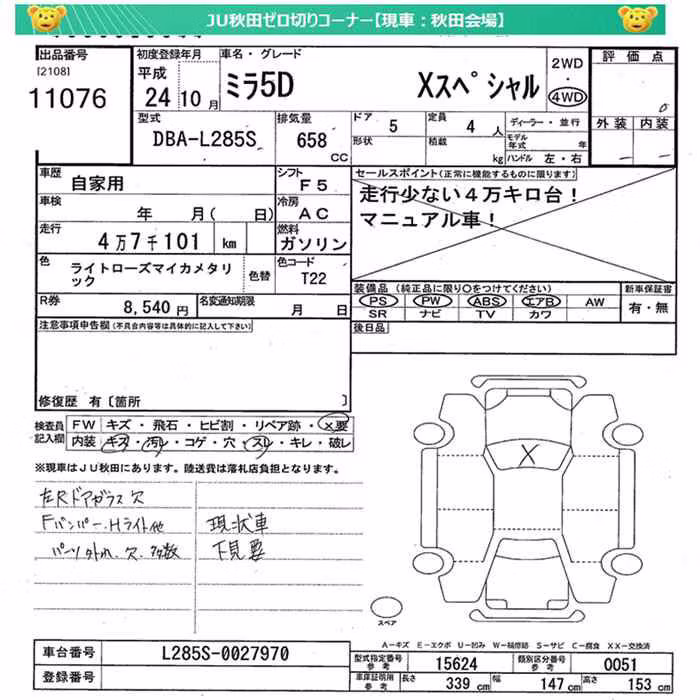 JU秋田ゼロ切りコーナー【現車:秋田会場】
出品番号
[2108]
11076
初度登録年月
平成
24 10 月
車名・グレード
ミラ5D Xスペシャル
2WD
・
4WD
評価点
0
外装 内装
－ －
型式
DBA-L285S
排気量
658
CC
ドア
5
定員
4 人
形状
積載
kg
ディーラー・並行
モデル年式 年
ハンドル 左・右
車歴
自家用
シフト
F5
車検
年 月( 日)
冷房
AC
走行
4万7千101 km
燃料
ガソリン
色
ライトローズマイカメタリック
色替
色コード
T22
R券
8,540 円
名変通知期限
月 日
セールスポイント(正常に機能するものに限ります)
走行少ない4万キロ台!
マニュアル車!
装備品(純正品に限り○をつけてください)
PS PW ABS エアB AW
SR ナビ TV カワ
新車保証書
有・無
後日品
注意事項申告欄(不具合内容等は具体的に記入して下さい)
修復歴 有[箇所 ]
検査員記入欄
FW キズ・飛石・ヒビ割・リペア跡・×要
内装 キズ・汚レ・コゲ・穴・スレ・キレ・破レ
※現車はJU秋田にあります。陸送費は落札店負担となります。
左Rドアガラス欠
Fバンパー.Hライト他
パーツ外れ.欠.多数
現状車
下見要
X
スペア
A－キズ E－エクボ U－凹み W－補修跡 S－サビ C－腐食 XX－交換済
車台番号
L285S-0027970
登録番号
型式指定番号参考
15624
類別区分番号参考
0051
車庫証明用参考
長さ 339 cm 幅 147 cm 高さ 153 cm